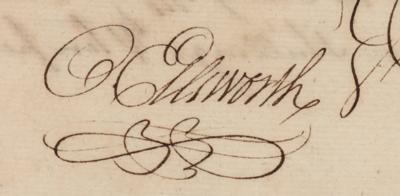 O Ellsworth